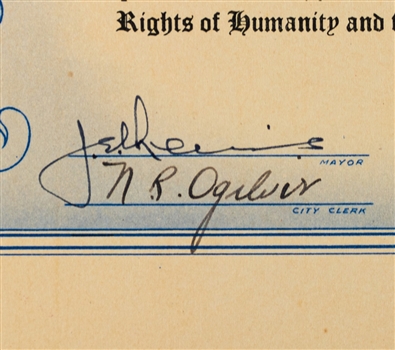 Rights of Humanity and t
MAYOR
N R. Ogilvie
CITY CLERK